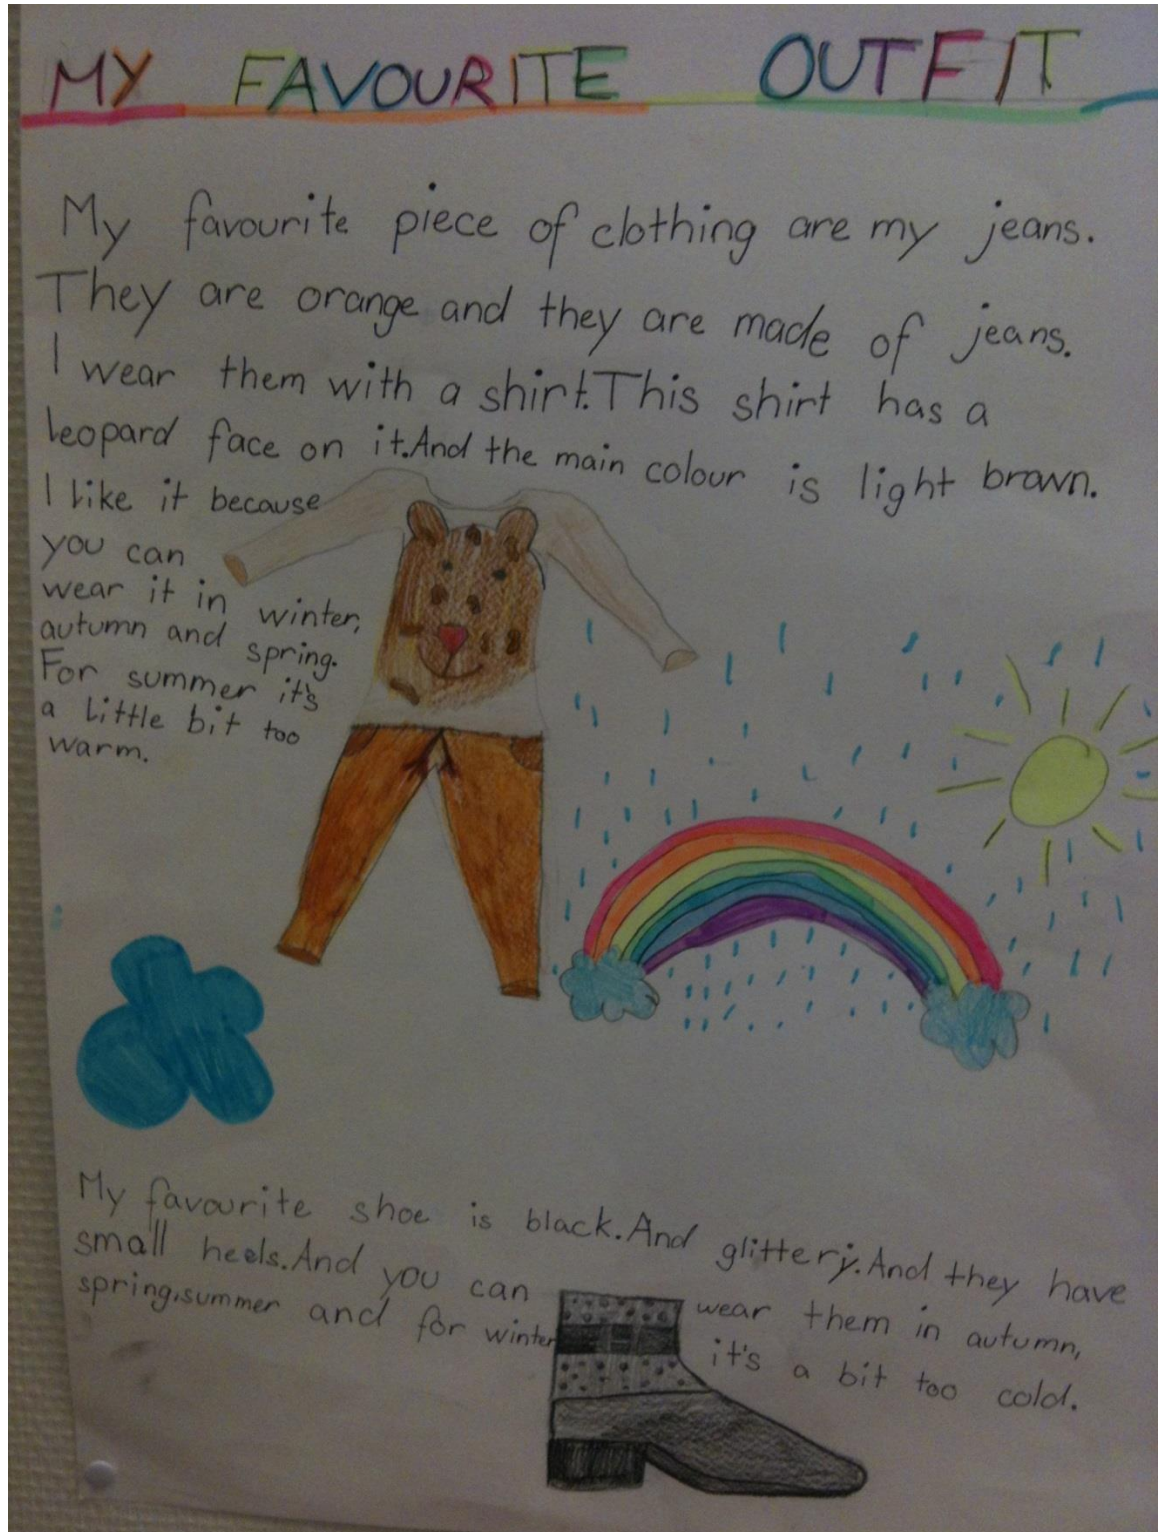 MY FAVOURITE OUTFIT
My favourite piece of clothing are my jeans.
They are orange and they are made of jeans.
I wear them with a shirt.This shirt has a
leopard face on it.And the main colour is light brown.
I like it because
you can
wear it in winter,
autumn and spring.
For summer it's
a little bit too
warm.
My favourite shoe is black.And glittery.And they have
small heels.And you can wear them in autumn,
spring,summer and for winter it's a bit too cold.